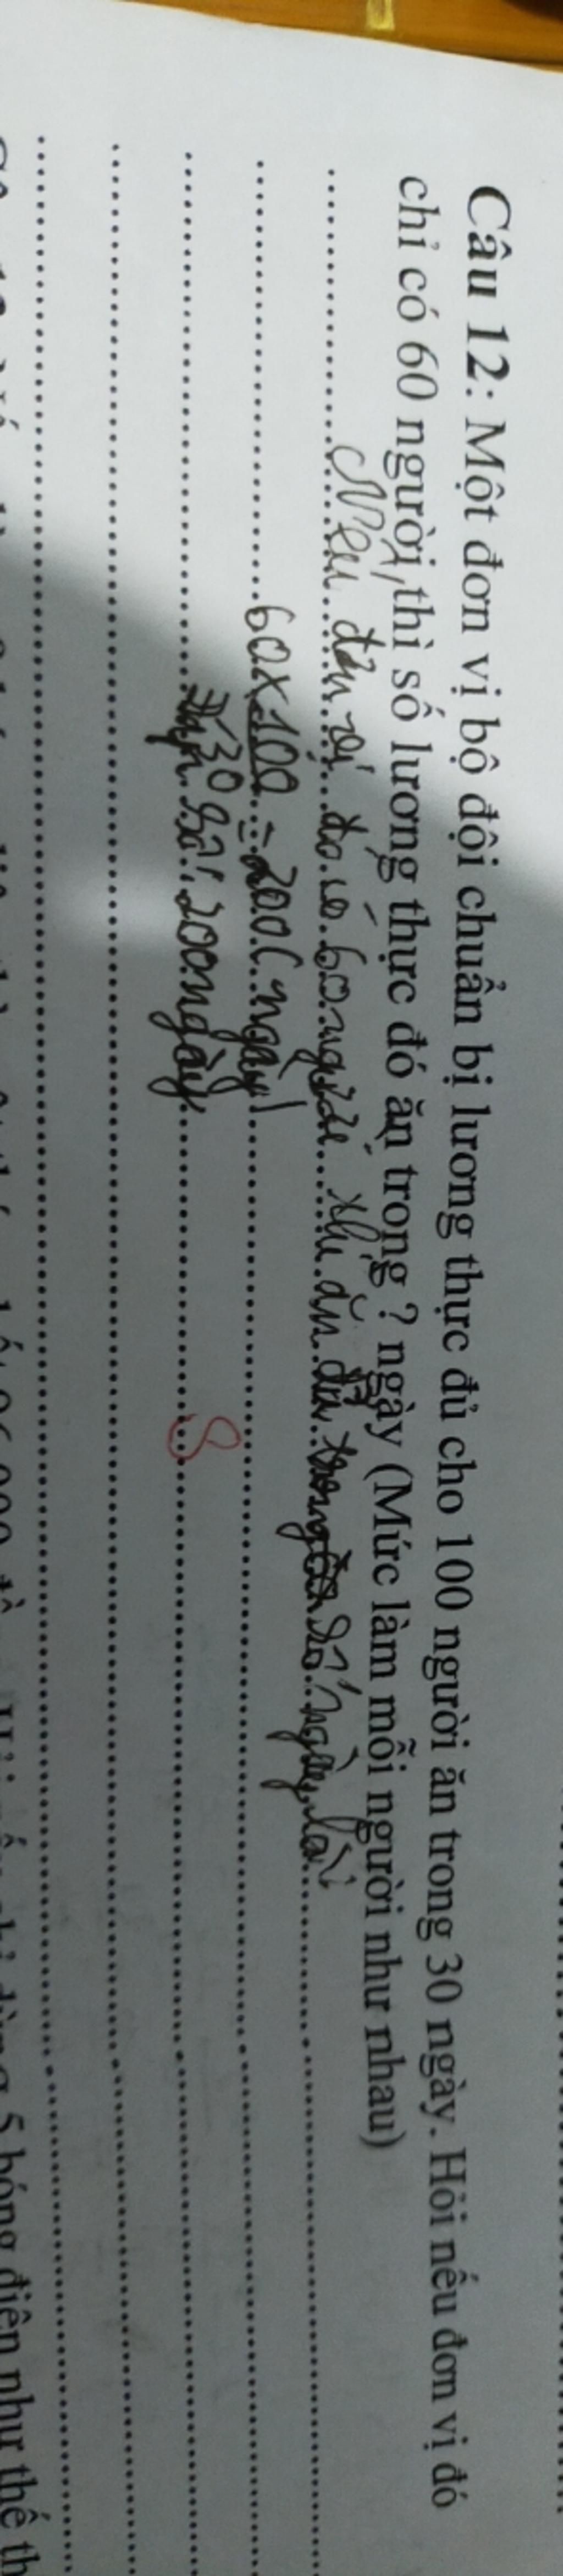 Câu 12: Một đơn vị bộ đội chuẩn bị lương thực đủ cho 100 người ăn trong 30 ngày. Hỏi nếu đơn vị đó
chỉ có 60 người thì số lương thực đó ăn trong ? ngày (Mức làm mỗi người như nhau)
Nếu đơn vị đo có 60 người thì ăn số ngày là
60 x 100 = 200 (ngày)
30
Đáp số: 200 ngày
8
5 bóng điện như thế th